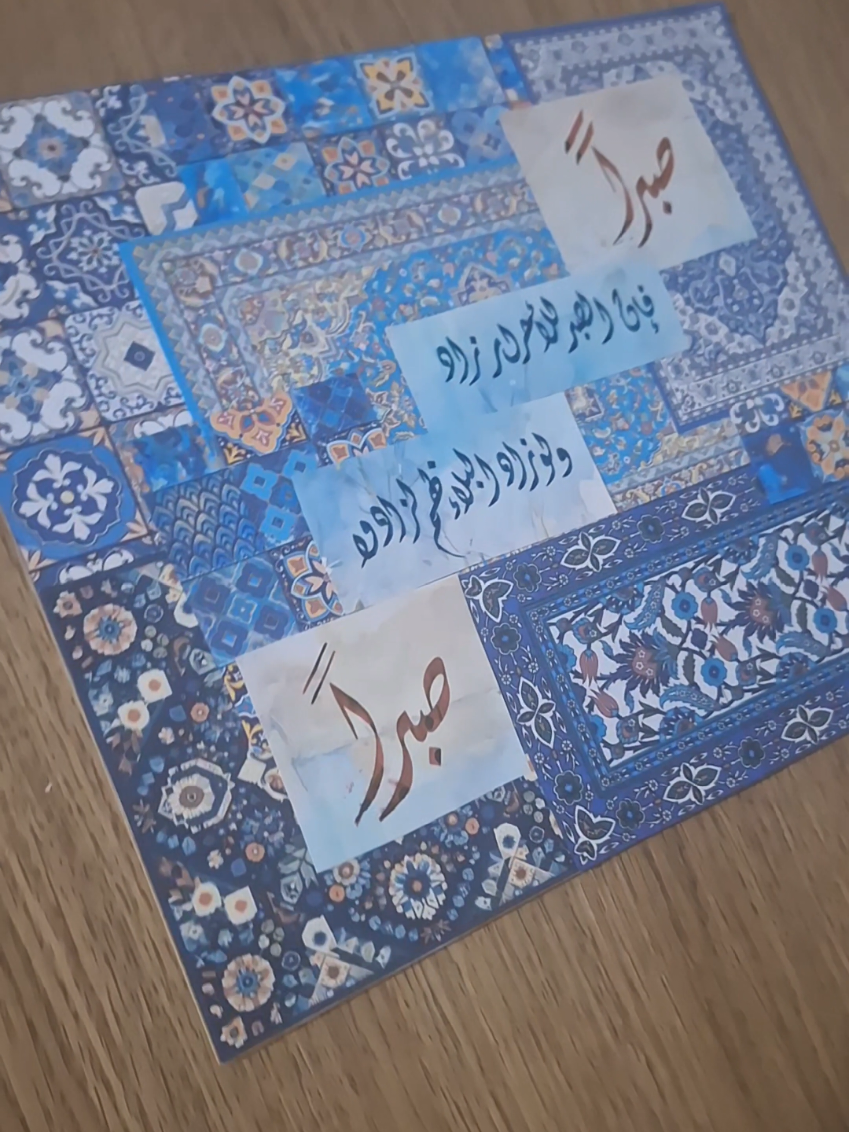 صبراً
فإن الصبر للأحرار زاد
ولو زاد البلاء فهم لزادوه
صبراً